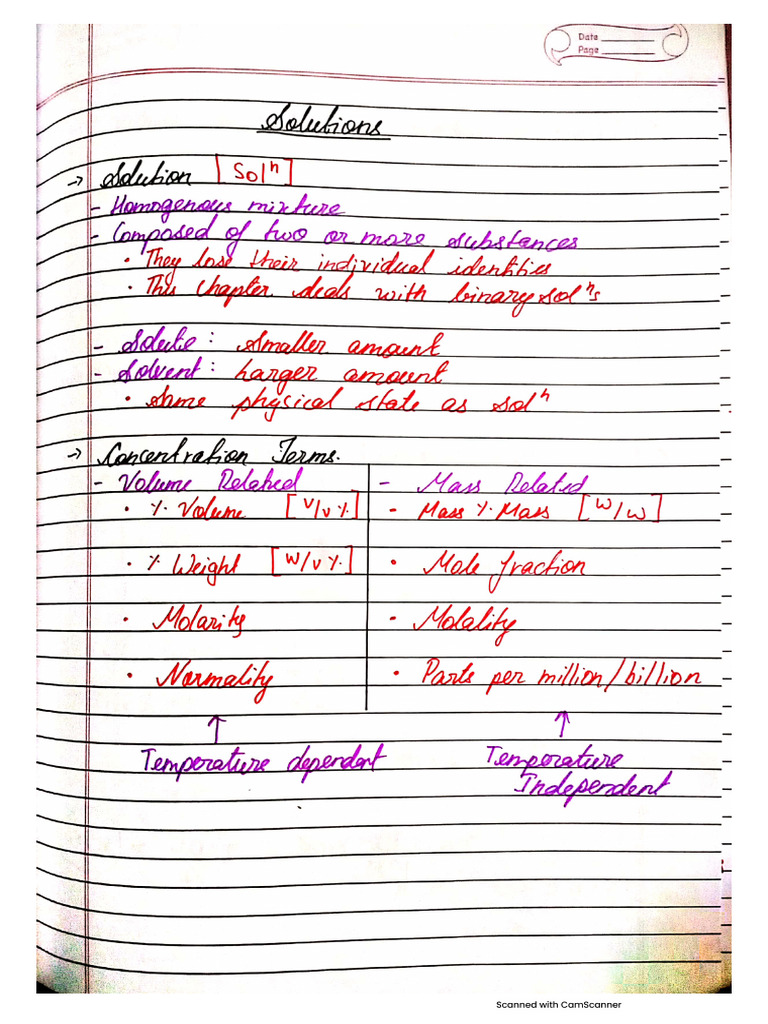 Date
Page
Solutions
→ Solution [Solⁿ]
- Homogenous mixture
- Composed of two or more substances
• They lose their individual identities
• This chapter deals with binary solⁿs
- Solute : Smaller amount
- Solvent : Larger amount
• Same physical state as solⁿ
→ Concentration Terms.
- Volume Related - Mass Related
• % Volume [V/V %] • Mass % Mass [W/W]
• % Weight [W/V %] • Mole fraction
• Molarity • Molality
• Normality • Parts per million/billion
↑ ↑
Temperature dependent Temperature
Independent
Scanned with CamScanner